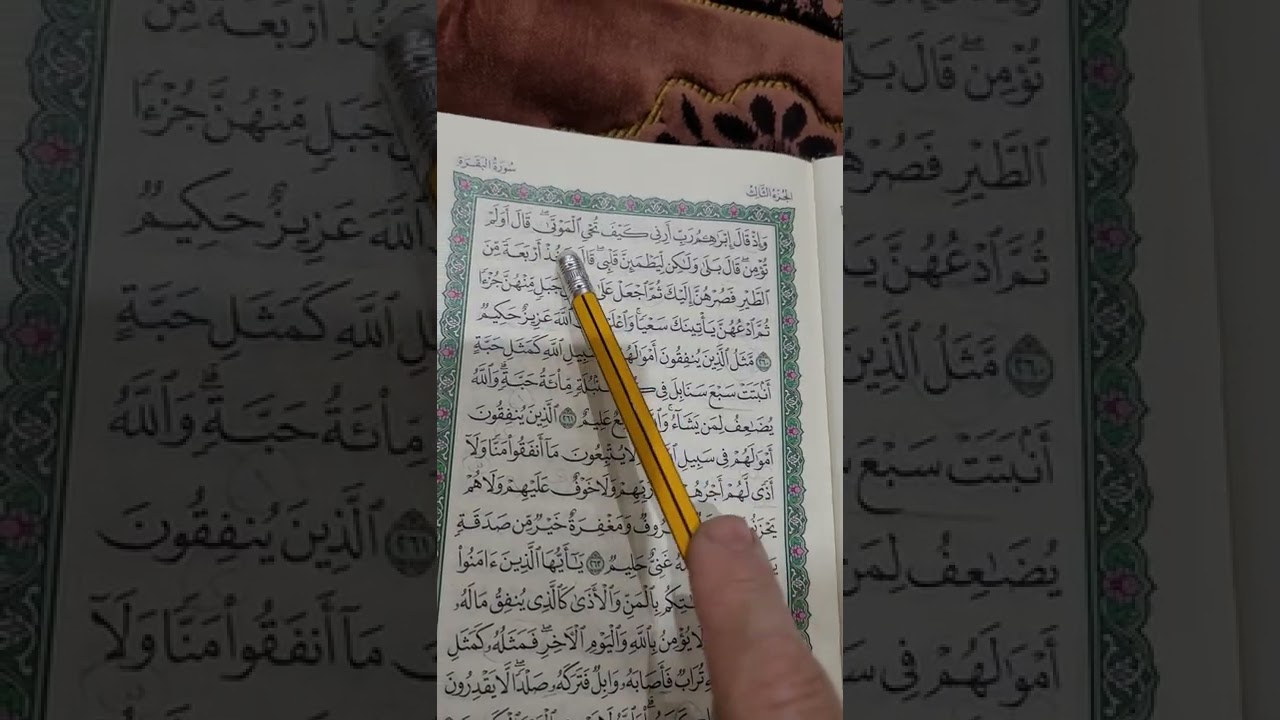 سُورَةُ البَقَرَةِ
الجُزْءُ الثَّالِثُ
وَإِذْ قَالَ إِبْرَٰهِـۧمُ رَبِّ أَرِنِى كَيْفَ تُحْىِ ٱلْمَوْتَىٰ ۖ قَالَ أَوَلَمْ
تُؤْمِن ۖ قَالَ بَلَىٰ وَلَٰكِن لِّيَطْمَئِنَّ قَلْبِى ۖ قَالَ فَخُذْ أَرْبَعَةً مِّنَ
ٱلطَّيْرِ فَصُرْهُنَّ إِلَيْكَ ثُمَّ ٱجْعَلْ عَلَىٰ جَبَلٍ مِّنْهُنَّ جُزْءًا
ثُمَّ ٱدْعُهُنَّ يَأْتِينَكَ سَعْيًا ۚ وَٱعْلَمْ ٱللَّهَ عَزِيزٌ حَكِيمٌ
٢٦٠ مَّثَلُ ٱلَّذِينَ يُنفِقُونَ أَمْوَٰلَهُمْ سَبِيلِ ٱللَّهِ كَمَثَلِ حَبَّةٍ
أَنۢبَتَتْ سَبْعَ سَنَابِلَ فِى سُنۢبُلَةٍ مِّا۟ئَةُ حَبَّةٍ ۗ وَٱللَّهُ
يُضَٰعِفُ لِمَن يَشَآءُ ۗ عَلِيمٌ ٢٦١ ٱلَّذِينَ يُنفِقُونَ
أَمْوَٰلَهُمْ فِى سَبِيلِ لَا يُتْبِعُونَ مَآ أَنفَقُوا۟ مَنًّا وَلَآ
أَذًى ۙ لَّهُمْ أَجْرُهُمْ رَبِّهِمْ وَلَا خَوْفٌ عَلَيْهِمْ وَلَا هُمْ
وَمَغْفِرَةٌ خَيْرٌ مِّن صَدَقَةٍ
غَنِىٌّ حَلِيمٌ ٢٦٣ يَٰٓأَيُّهَا ٱلَّذِينَ ءَامَنُوا۟
بِٱلْمَنِّ وَٱلْأَذَىٰ كَٱلَّذِى يُنفِقُ مَالَهُۥ
لَا يُؤْمِنُ بِٱللَّهِ وَٱلْيَوْمِ ٱلْـَٔاخِرِ ۖ فَمَثَلُهُۥ كَمَثَلِ
تُرَابٌ فَأَصَابَهُۥ وَابِلٌ فَتَرَكَهُۥ صَلْدًا ۖ لَّا يَقْدِرُونَ